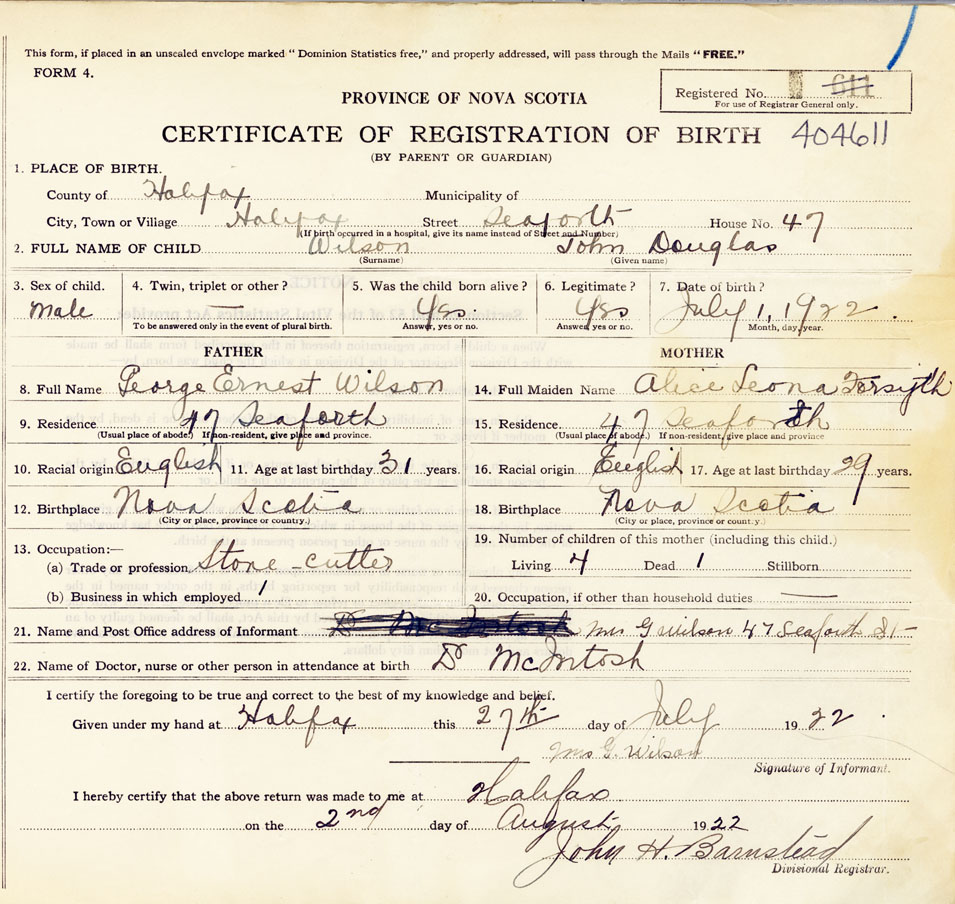 This form, if placed in an unsealed envelope marked "Dominion Statistics free," and properly addressed, will pass through the Mails "FREE."
FORM 4.
Registered No. 611
For use of Registrar General only.
PROVINCE OF NOVA SCOTIA
CERTIFICATE OF REGISTRATION OF BIRTH 404611
(BY PARENT OR GUARDIAN)
1. PLACE OF BIRTH.
County of Halifax Municipality of
City, Town or Village Halifax Street Seaforth House No. 47
(If birth occurred in a hospital, give its name instead of Street and Number)
2. FULL NAME OF CHILD Wilson John Douglas
(Surname) (Given name)
3. Sex of child. 4. Twin, triplet or other? 5. Was the child born alive? 6. Legitimate? 7. Date of birth?
Male — Yes. Yes July 1, 1922.
To be answered only in the event of plural birth. Answer, yes or no. Answer, yes or no. Month, day, year.
FATHER MOTHER
8. Full Name George Ernest Wilson 14. Full Maiden Name Alice Leona Forsyth
9. Residence 47 Seaforth 15. Residence 47 Seaforth
(Usual place of abode.) If non-resident, give place and province. (Usual place of abode.) If non-resident, give place and province
10. Racial origin English 11. Age at last birthday 31 years. 16. Racial origin English 17. Age at last birthday 29 years.
12. Birthplace Nova Scotia 18. Birthplace Nova Scotia
(City or place, province or country.) (City or place, province or country.)
13. Occupation:— 19. Number of children of this mother (including this child.)
(a) Trade or profession Stone-cutter Living 4 Dead 1 Stillborn
(b) Business in which employed 1 20. Occupation, if other than household duties —
21. Name and Post Office address of Informant Dr McIntosh Mrs G Wilson 47 Seaforth St—
22. Name of Doctor, nurse or other person in attendance at birth Dr McIntosh
I certify the foregoing to be true and correct to the best of my knowledge and belief.
Given under my hand at Halifax this 27th day of July 1922.
Mrs G. Wilson
Signature of Informant.
I hereby certify that the above return was made to me at Halifax
on the 2nd day of August 1922
John H. Barnstead
Divisional Registrar.